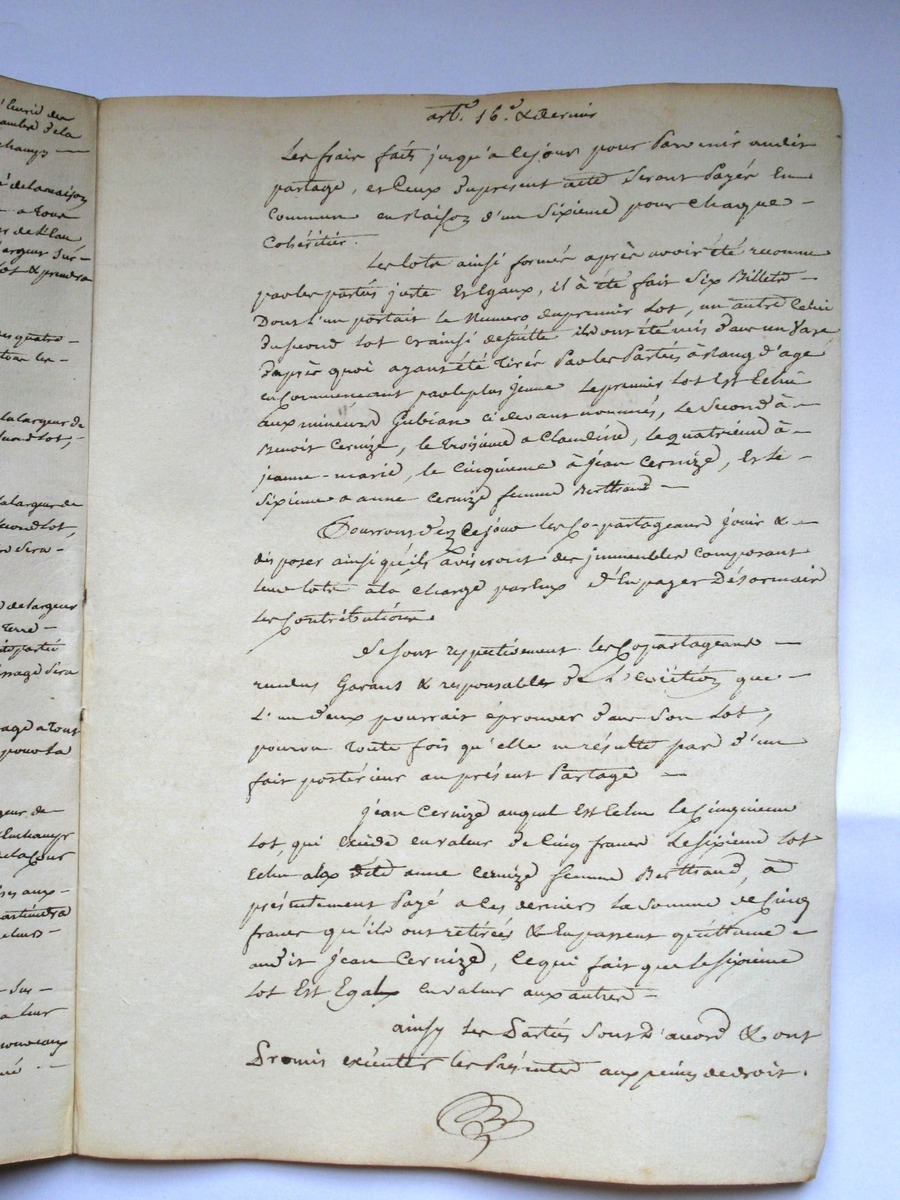 l'Envie des
chambre de la
champs —
de la maison
a tour
de l'Eau
largeur sur-
lot & prendra
es quatre -
la largeur de
la largeur de
second lot,
sera -
de largeur
terre -
partie
passage sera
passage a tout
pour la
geur de
la Cour
ses aux -
- Sur -
a leur
nouveaux
art.e 16.e & dernier
Les frais faits jusqu'a ce jour pour Parvenir audit
partage, et Ceux du present acte Seront Payés En
Commun en Raison d'un Sixieme pour chaque -
Cohéritier.
Les lots ainsi formés après avoir été reconnu
par les partés juste Et Egaux, il à été fait Six Billets -
Dont l'un portait le Numero du premier Lot, un autre Celui
du second lot & ainsi desuitte ils ont été mis dans un Vase
d'après quoi ayant été Tirés Par les Partés à Rang d'age
en Commencant par le plus jeune Le premier Lot Est Echu
aux mineurs Gubian ci devant nommés, Le Second à -
Benoit Cernize, le Troisieme a Claudine, le quatrieme à -
jeanne-marie, le Cinquieme à Jean Cernize, Et le -
Sixieme a anne Cernize femme Berthand —
Pourront dez Ce jour les Co-partageans jouir & -
disposer ainsi qu'ils aviseront des jmmeubles Composant
leur lots à la Charge par Eux d'En payer Désormais
Les Contributions
Se sont respectivement les Copartageans —
rendus Garant & responsables de L'Eviction que -
L'un deux pourrait éprouver dans Son Lot,
pourvu toute fois qu'elle ne résulte pas d'un
fait postérieur au présent Partage —
jean Cernize auquel Est Echu le Cinquieme
Lot, qui Excéde en valeur de Cinq francs Le sixieme lot
Echu à lad dite anne Cernize femme Berthand, à
présentement Payé a Ces derniers La Somme de Cinq
francs qu'ils ont retirées & En passent quittance -
audit Jean Cernize, Ce qui fait que le sixieme
lot Est Egal En valeur aux autres -
ainsy Les Partés Sont D'acord & ont
Promis exécutter les Présentes aux peines de droit.